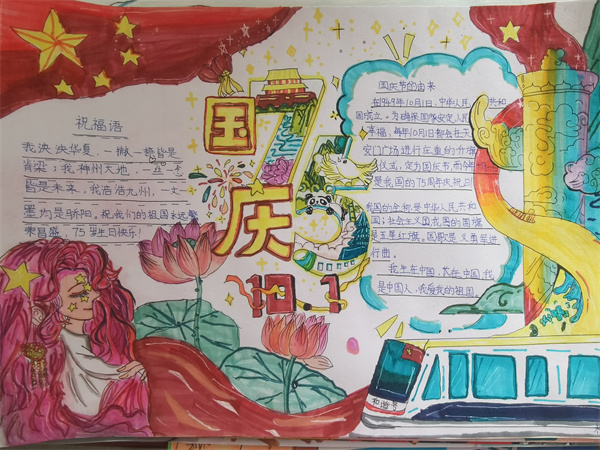 祝福语
我泱泱华夏，一撇一捺皆是
脊梁；我神州大地，一丝一
皆是未来，我浩浩九州，一文一
墨均是骄阳，祝我们的祖国永远繁
荣昌盛，75岁生日快乐！
国
庆
75
10.1
国庆节的由来
在1949年10月1日，中华人民共和
国成立。为
幸福，每年10月1日都会在天
安门广场进行庄重的升旗
仪式，定为国庆节，而今年
是我国的75周年庆祝日
我国的全称是中华人民共和
国；社会主义国
是五星红旗，国歌是义勇军进
行曲。
我生在中国，长在中国，我
是中国人，我爱我的祖国
和谐号